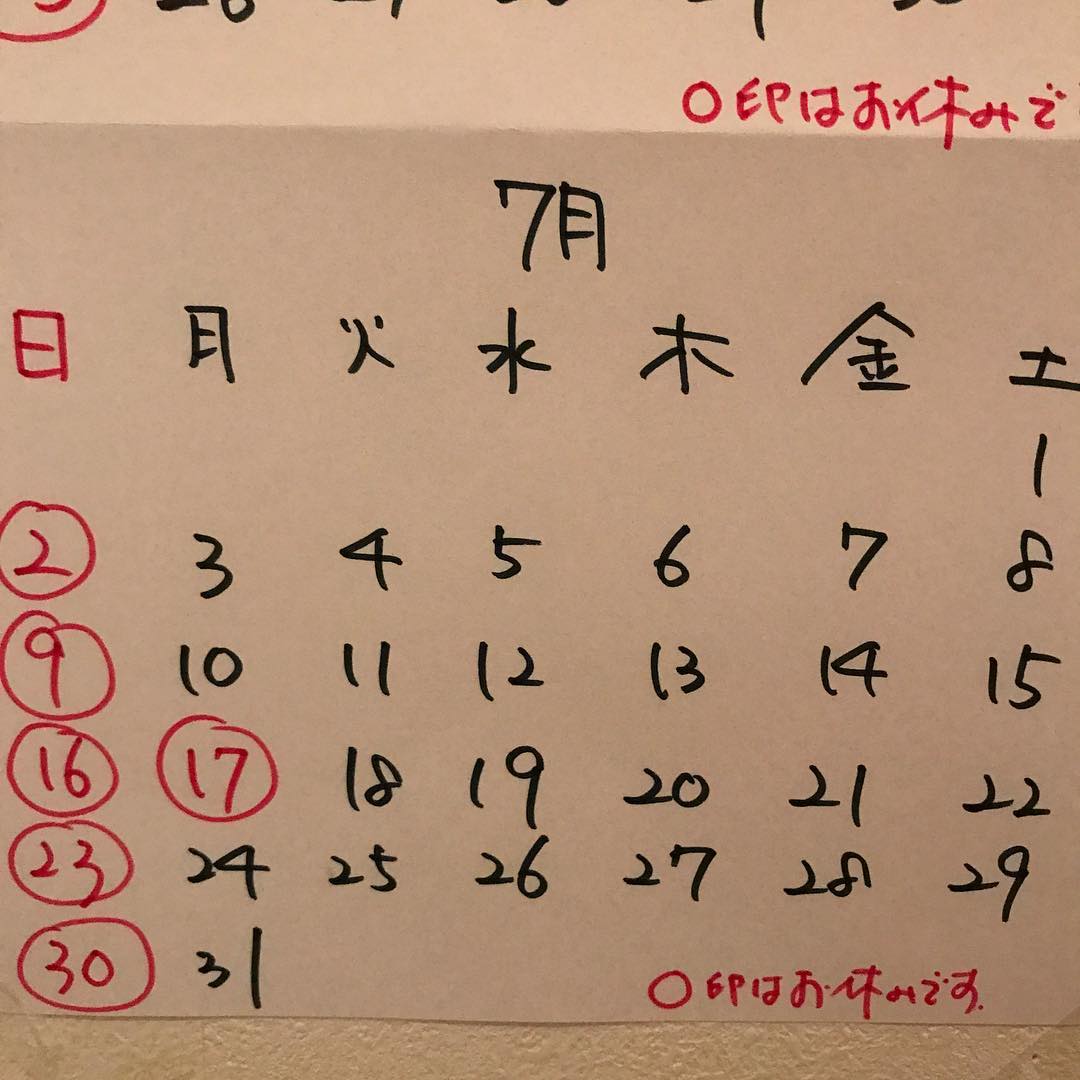 ○印はお休みで
7月
日 月 火 水 木 金 土
1
2 3 4 5 6 7 8
9 10 11 12 13 14 15
16 17 18 19 20 21 22
23 24 25 26 27 28 29
30 31
○印はお休みです.